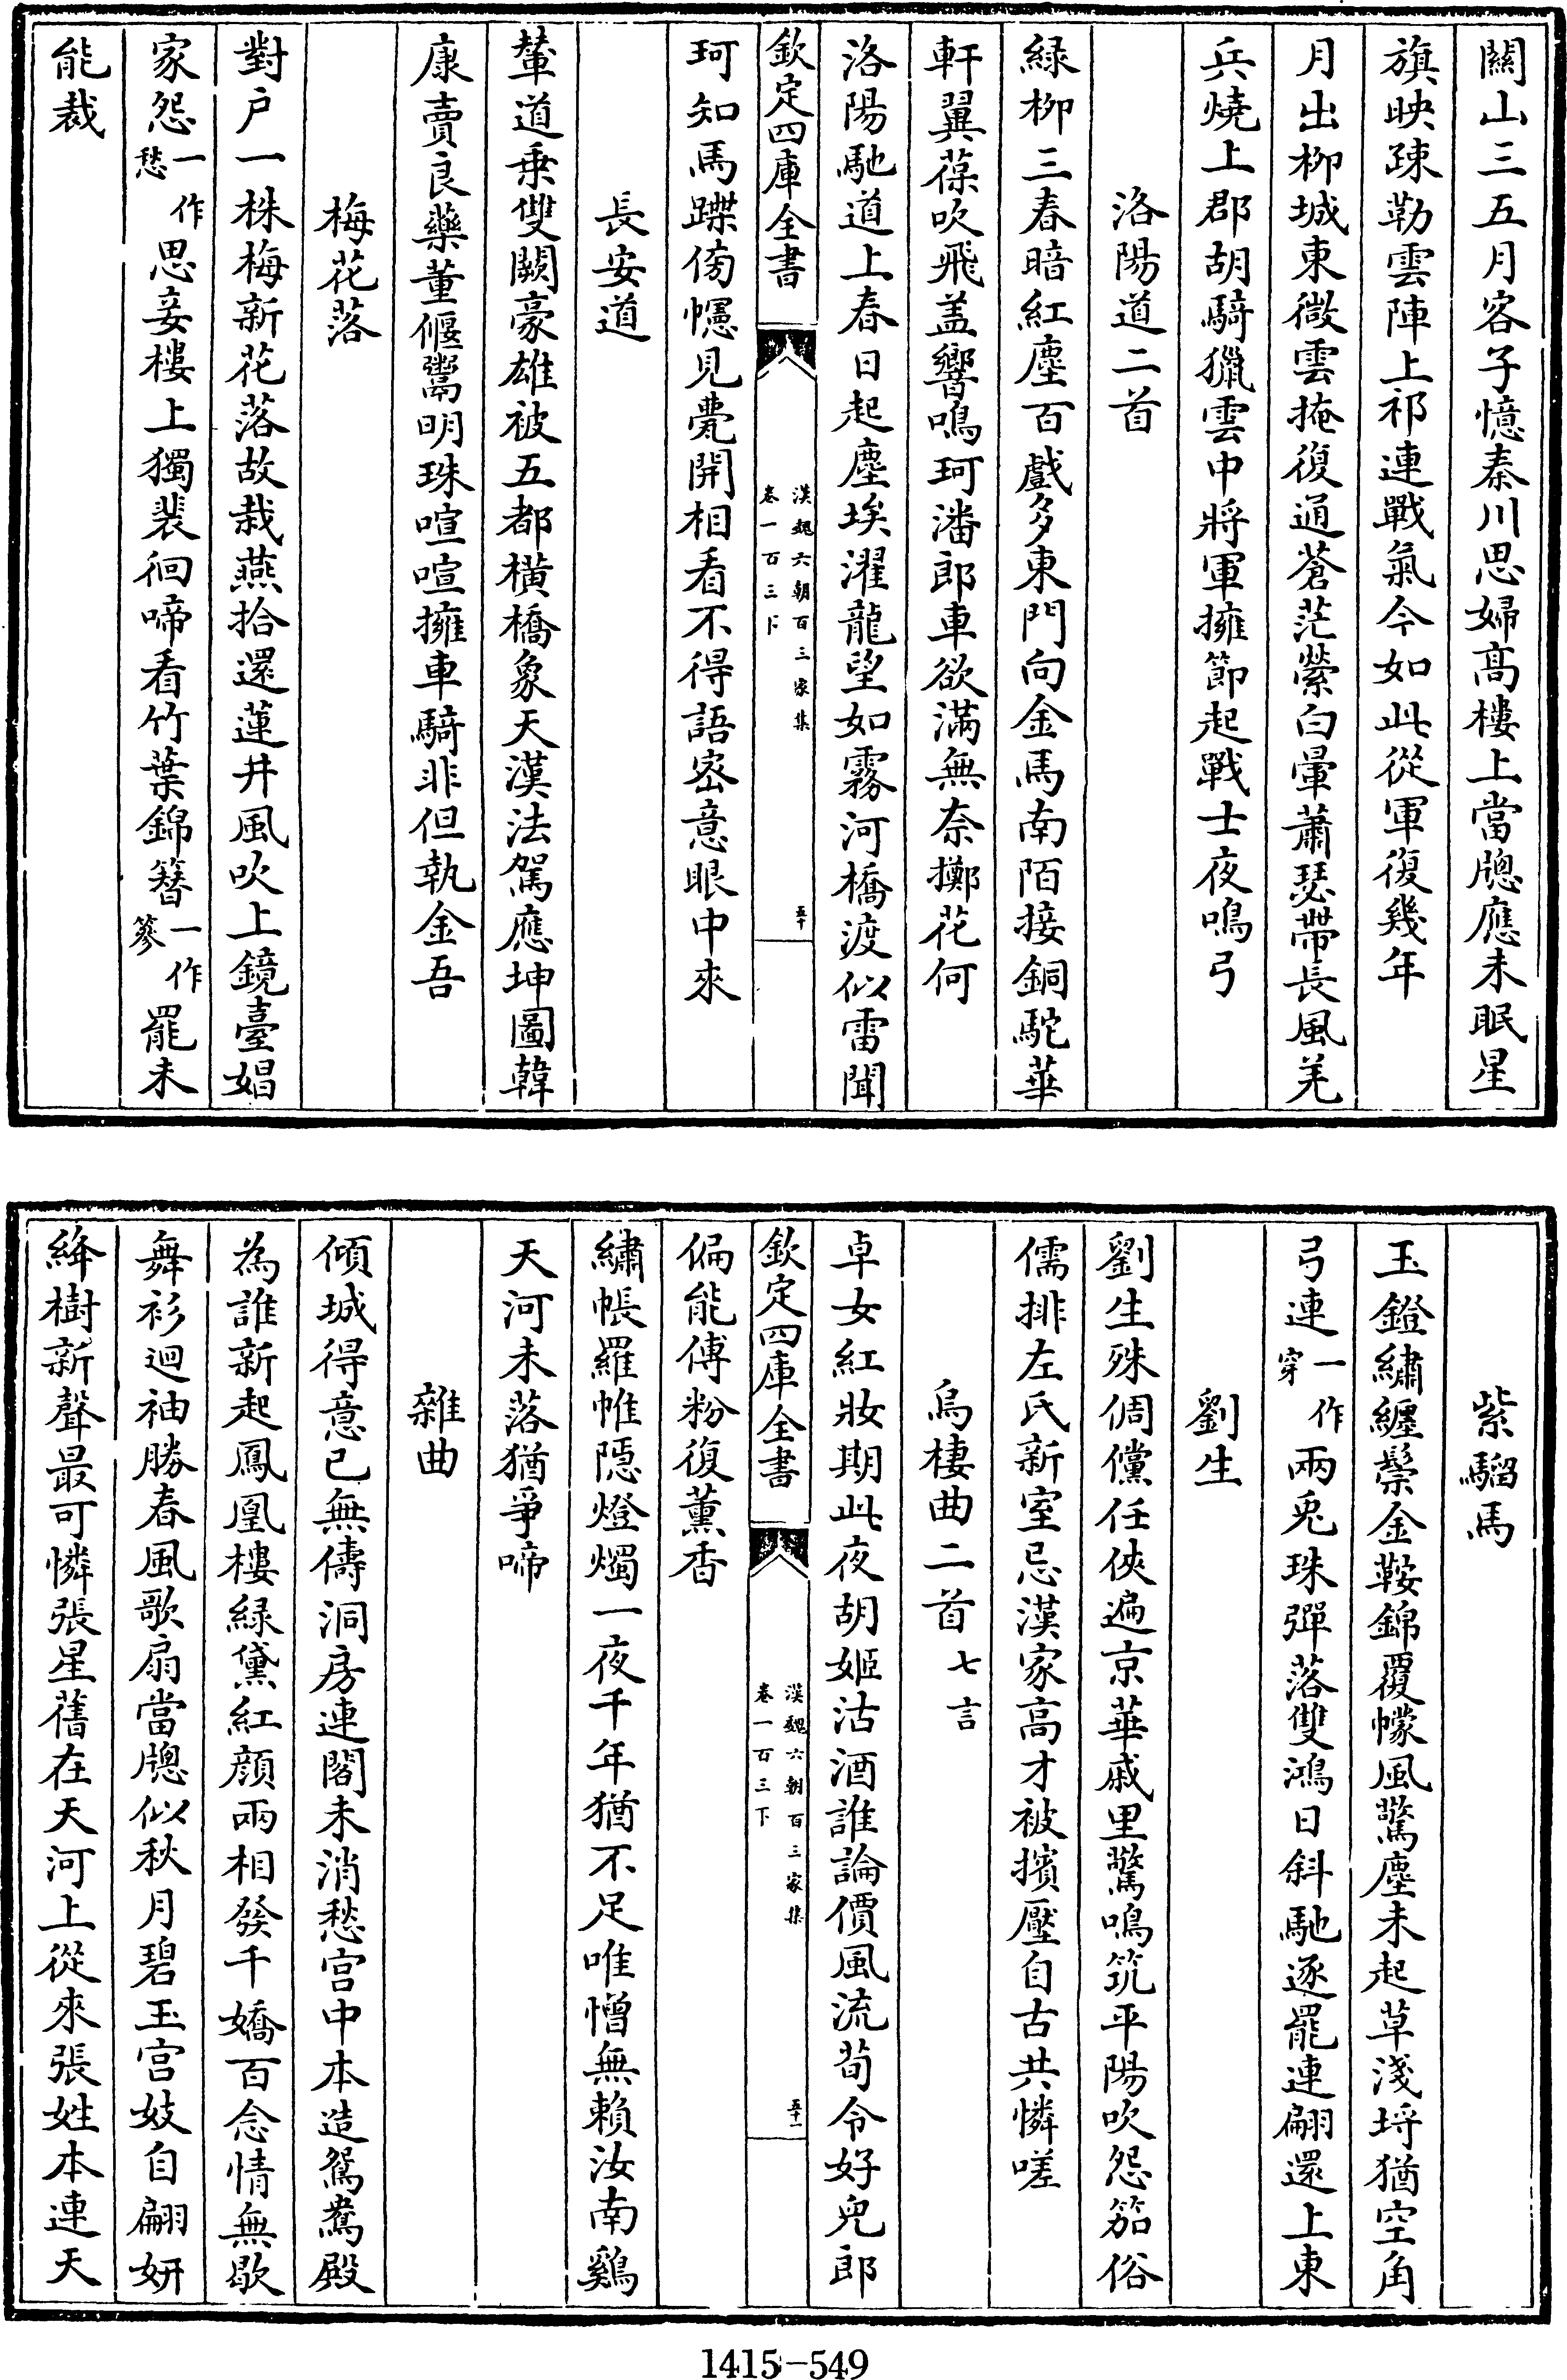 關山三五月客子憶秦川思婦髙樓上當牕應未眠星
旗映疎勒雲陣上祁連戰氣今如此從軍復幾年
月出柳城東微雲掩復通蒼茫縈白暈蕭瑟帶長風羌
兵燒上郡胡騎獵雲中將軍擁節起戰士夜鳴弓
洛陽道二首
緑柳三春暗紅塵百戲多東門向金馬南陌接銅駝華
軒翼葆吹飛盖響鳴珂潘郎車欲滿無奈擲花何
洛陽馳道上春日起塵埃濯龍望如霧河橋渡似雷聞
欽定四庫全書
漢魏六朝百三家集
卷一百三下
五十
珂知馬蹀傍幰見甍開相看不得語密意眼中來
長安道
輦道乗雙闕豪雄被五都橫橋象天漢法駕應坤圖韓
康賣良藥董偃鬻明珠喧喧擁車騎非但執金吾
梅花落
對户一株梅新花落故栽燕拾還蓮井風吹上鏡臺娼
家怨一作愁思妾樓上獨裴徊啼看竹葉錦簪一作篸罷未
能裁
紫騮馬
玉鐙繡纏鬃金鞍錦覆幪風驚塵未起草淺埒猶空角
弓連一作穿兩兎珠彈落雙鴻日斜馳逐罷連翩還上東
劉生
劉生殊倜儻任俠遍京華戚里驚鳴筑平陽吹怨笳俗
儒排左氏新室忌漢家高才被擯壓自古共憐嗟
烏棲曲二首七言
卓女紅妝期此夜胡姬沽酒誰論價風流荀令好兒郎
欽定四庫全書
漢魏六朝百三家集
卷一百三下
五十一
偏能傅粉復薰香
繡帳羅帷隱燈燭一夜千年猶不足唯憎無賴汝南鷄
天河未落猶爭啼
雜曲
傾城得意已無儔洞房連閣未消愁宫中本造鴛鴦殿
為誰新起鳳凰樓緑黛紅顔兩相發千嬌百念情無歇
舞衫迴袖勝春風歌扇當牕似秋月碧玉宫妓自翩妍
絳樹新聲最可憐張星舊在天河上從來張姓本連天
1415-549